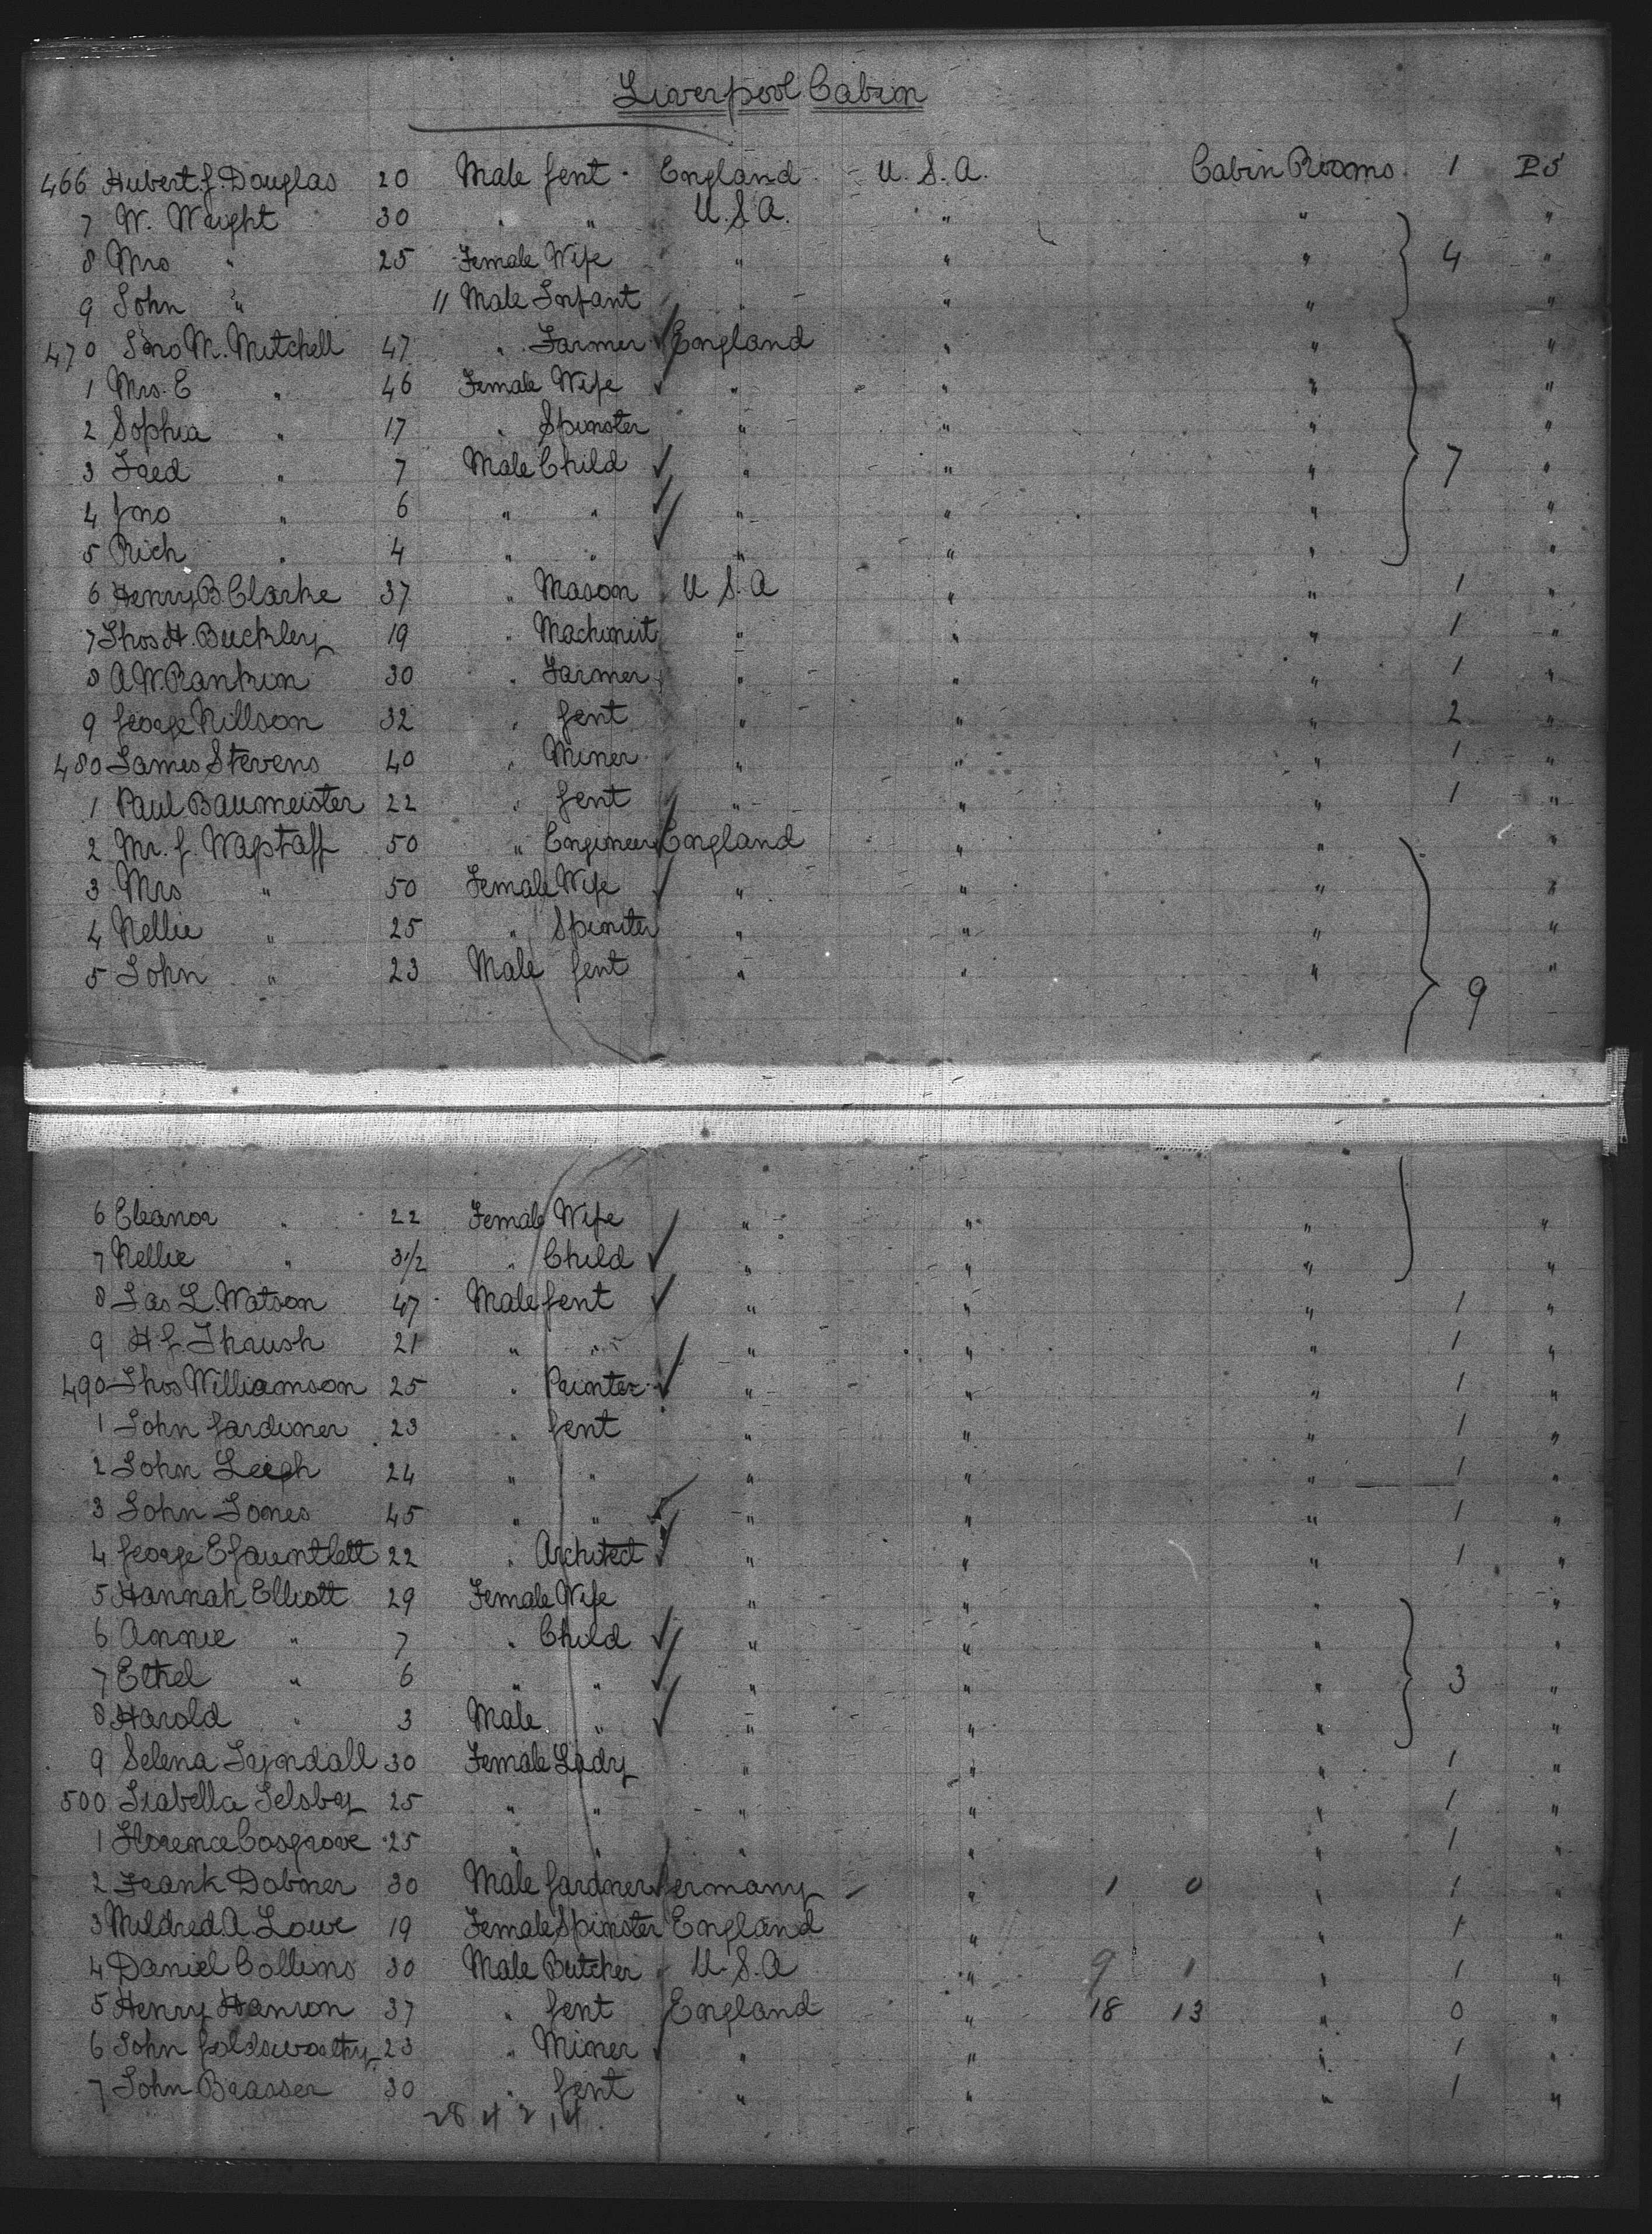 Liverpool Cabin
466 Hubert G. Douglas 20 Male Gent England U.S.A. Cabin Rooms 1 P5
7 W. Waight 30 " " U.S.A. " " "
8 Mrs " 25 Female Wife " " " 4 "
9 John " 11 Male Infant " " " "
470 Jno M. Mitchell 47 " Farmer England " " "
1 Mrs. E " 46 Female Wife " " " "
2 Sophia " 17 " Spinster " " " "
3 Fred " 7 Male Child " " " 7 "
4 Jno " 6 " " " " " "
5 Rich " 4 " " " " " "
6 Henry B. Clarke 37 " Mason U.S.A " " 1 "
7 Thos H. Buckley 19 " Machinist " " " 1 "
8 A.W. Rankin 30 " Farmer " " " 1 "
9 George Nillson 32 " Gent " " " 2 "
480 James Stevens 40 " Miner " " " 1 "
1 Paul Baumeister 22 " Gent " " " 1 "
2 Mr. G. Wagstaff 50 " Engineer England " " "
3 Mrs " 50 Female Wife " " " "
4 Nellie " 25 " Spinster " " " "
5 John " 23 Male Gent " " " 9 "
6 Eleanor " 22 Female Wife " " " "
7 Nellie " 3 1/2 " Child " " " "
8 Jas L. Watson 47 Male Gent " " " 1 "
9 H.G. Thrush 21 " " " " " 1 "
490 Thos Williamson 25 " Painter " " " 1 "
1 John Gardiner 23 " Gent " " " 1 "
2 John Leigh 24 " " " " " 1 "
3 John Jones 45 " " " " " 1 "
4 George E Gauntlett 22 " Architect " " " 1 "
5 Hannah Elliott 29 Female Wife " " " "
6 Annie " 7 " Child " " " "
7 Ethel " 6 " " " " " 3 "
8 Harold " 3 Male " " " " "
9 Selena Tyndall 30 Female Lady " " " 1 "
500 Isabella Selsby 25 " " " " " 1 "
1 Florence Cosgrove 25 " " " " " 1 "
2 Frank Dobner 30 Male Gardner Germany " 1 0 " 1 "
3 Mildred A. Lowe 19 Female Spinster England " " 1 "
4 Daniel Collins 30 Male Butcher U.S.A " 9 1 " 1 "
5 Henry Hanson 37 " Gent England " 18 13 " 0 "
6 John Goldsworthy 23 " Miner " " " 1 "
7 John Brasser 30 " Gent " " " 1 "